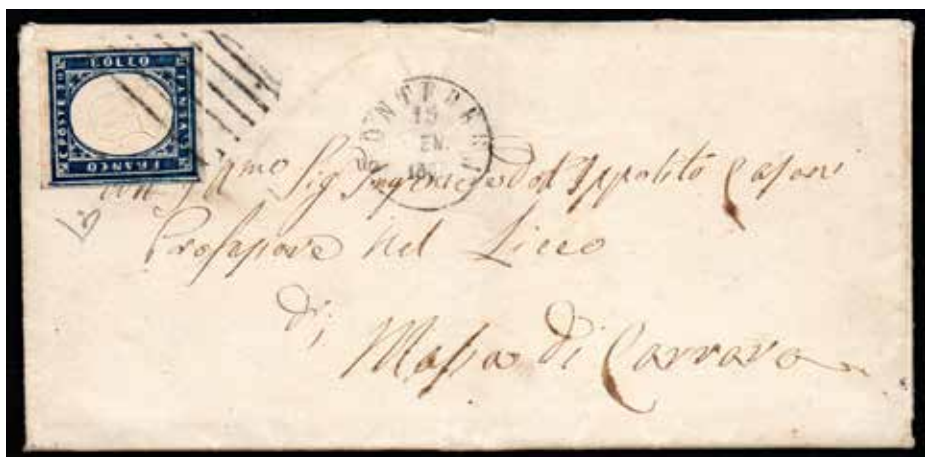 BOLLO
C POSTE 20
FRANCO
PONTEDERA
15
EN.
Ill.mo Sig. Ingegnere Dot. Ippolito
Professore nel Liceo
di
Massa di Carrara